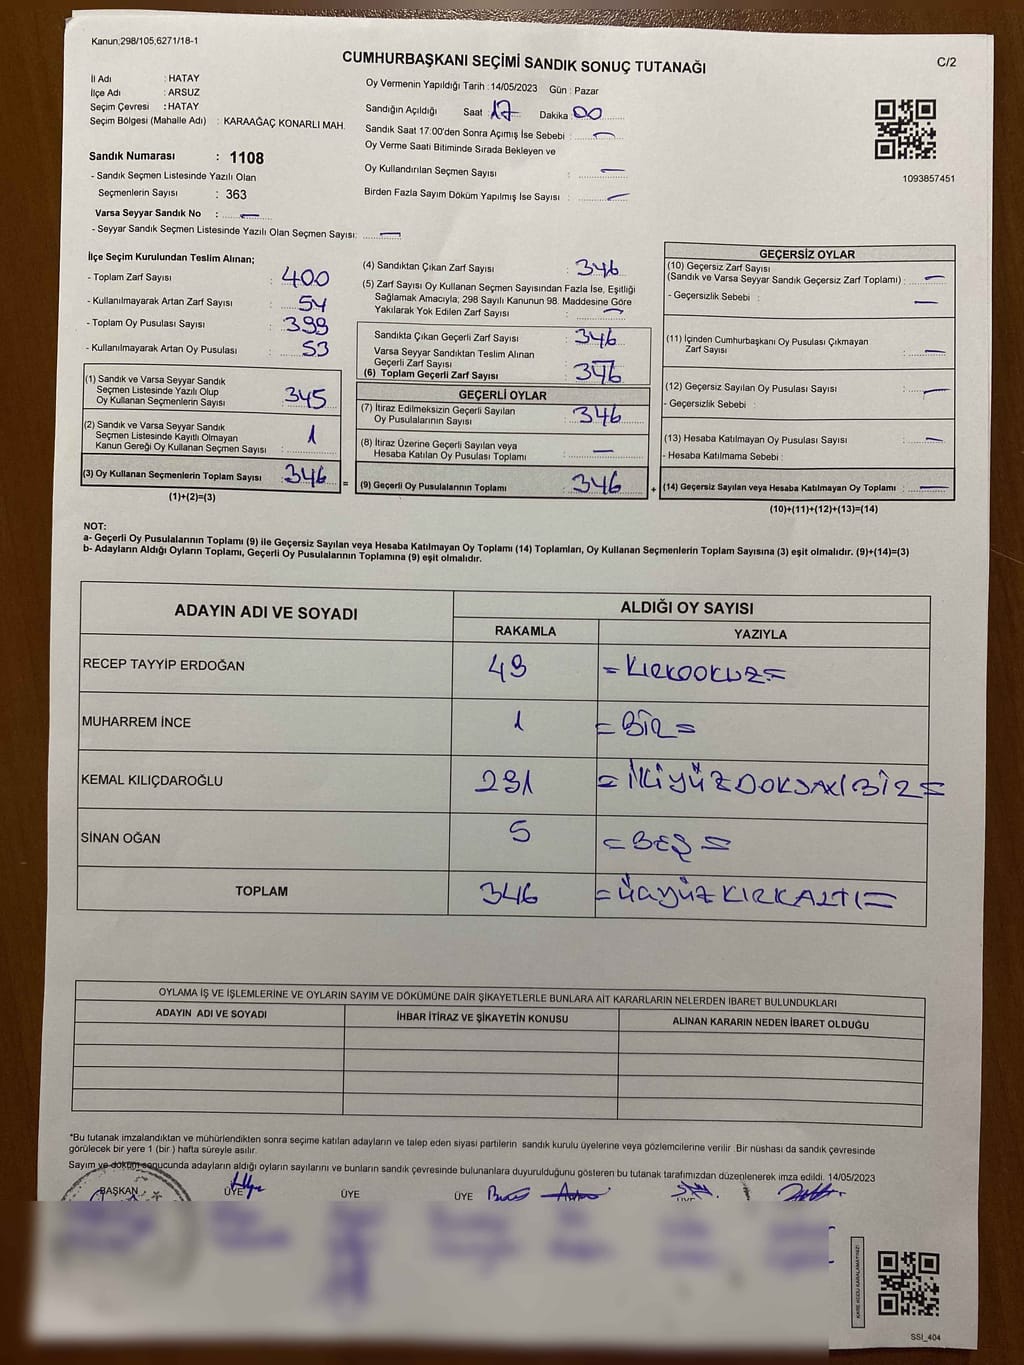 Kanun;298/105,6271/18-1
CUMHURBAŞKANI SEÇİMİ SANDIK SONUÇ TUTANAĞI
C/2
İl Adı : HATAY
İlçe Adı : ARSUZ
Seçim Çevresi : HATAY
Seçim Bölgesi (Mahalle Adı) : KARAAĞAÇ KONARLI MAH.
Sandık Numarası : 1108
- Sandık Seçmen Listesinde Yazılı Olan
Seçmenlerin Sayısı : 363
Varsa Seyyar Sandık No : —
- Seyyar Sandık Seçmen Listesinde Yazılı Olan Seçmen Sayısı: —
Oy Vermenin Yapıldığı Tarih : 14/05/2023 Gün : Pazar
Sandığın Açıldığı Saat : 17 Dakika : 00
Sandık Saat 17:00'den Sonra Açımış İse Sebebi : —
Oy Verme Saati Bitiminde Sırada Bekleyen ve
Oy Kullandırılan Seçmen Sayısı : —
Birden Fazla Sayım Döküm Yapılmış İse Sayısı : —
1093857451
İlçe Seçim Kurulundan Teslim Alınan;
- Toplam Zarf Sayısı : 400
- Kullanılmayarak Artan Zarf Sayısı : 54
- Toplam Oy Pusulası Sayısı : 399
- Kullanılmayarak Artan Oy Pusulası : 53
(1) Sandık ve Varsa Seyyar Sandık
Seçmen Listesinde Yazılı Olup
Oy Kullanan Seçmenlerin Sayısı : 345
(2) Sandık ve Varsa Seyyar Sandık
Seçmen Listesinde Kayıtlı Olmayan
Kanun Gereği Oy Kullanan Seçmen Sayısı : 1
(3) Oy Kullanan Seçmenlerin Toplam Sayısı : 346 =
(1)+(2)=(3)
(4) Sandıktan Çıkan Zarf Sayısı : 346
(5) Zarf Sayısı Oy Kullanan Seçmen Sayısından Fazla İse, Eşitliği
Sağlamak Amacıyla; 298 Sayılı Kanunun 98. Maddesine Göre
Yakılarak Yok Edilen Zarf Sayısı : —
Sandıkta Çıkan Geçerli Zarf Sayısı : 346
Varsa Seyyar Sandıktan Teslim Alınan
Geçerli Zarf Sayısı : —
(6) Toplam Geçerli Zarf Sayısı : 346
GEÇERLİ OYLAR
(7) İtiraz Edilmeksizin Geçerli Sayılan
Oy Pusulalarının Sayısı : 346
(8) İtiraz Üzerine Geçerli Sayılan veya
Hesaba Katılan Oy Pusulası Toplamı : —
(9) Geçerli Oy Pusulalarının Toplamı : 346 +
GEÇERSİZ OYLAR
(10) Geçersiz Zarf Sayısı
(Sandık ve Varsa Seyyar Sandık Geçersiz Zarf Toplamı) : —
- Geçersizlik Sebebi : —
(11) İçinden Cumhurbaşkanı Oy Pusulası Çıkmayan
Zarf Sayısı : —
(12) Geçersiz Sayılan Oy Pusulası Sayısı : —
- Geçersizlik Sebebi :
(13) Hesaba Katılmayan Oy Pusulası Sayısı : —
- Hesaba Katılmama Sebebi :
(14) Geçersiz Sayılan veya Hesaba Katılmayan Oy Toplamı : —
(10)+(11)+(12)+(13)=(14)
NOT:
a- Geçerli Oy Pusulalarının Toplamı (9) ile Geçersiz Sayılan veya Hesaba Katılmayan Oy Toplamı (14) Toplamları, Oy Kullanan Seçmenlerin Toplam Sayısına (3) eşit olmalıdır. (9)+(14)=(3)
b- Adayların Aldığı Oyların Toplamı, Geçerli Oy Pusulalarının Toplamına (9) eşit olmalıdır.
ADAYIN ADI VE SOYADI ALDIĞI OY SAYISI
RAKAMLA YAZIYLA
RECEP TAYYİP ERDOĞAN 49 = KIRKDOKUZ =
MUHARREM İNCE 1 = BİR =
KEMAL KILIÇDAROĞLU 291 = İKİYÜZDOKSANBİR =
SİNAN OĞAN 5 = BEŞ =
TOPLAM 346 = ÜÇYÜZKIRKALTI =
OYLAMA İŞ VE İŞLEMLERİNE VE OYLARIN SAYIM VE DÖKÜMÜNE DAİR ŞİKAYETLERLE BUNLARA AİT KARARLARIN NELERDEN İBARET BULUNDUKLARI
ADAYIN ADI VE SOYADI İHBAR İTİRAZ VE ŞİKAYETİN KONUSU ALINAN KARARIN NEDEN İBARET OLDUĞU
*Bu tutanak imzalandıktan ve mühürlendikten sonra seçime katılan adayların ve talep eden siyasi partilerin sandık kurulu üyelerine veya gözlemcilerine verilir. Bir nüshası da sandık çevresinde
görülecek bir yere 1 (bir ) hafta süreyle asılır.
Sayım ve döküm sonucunda adayların aldığı oyların sayılarını ve bunların sandık çevresinde bulunanlara duyurulduğunu gösteren bu tutanak tarafımızdan düzenlenerek imza edildi. 14/05/2023
BAŞKAN ÜYE ÜYE ÜYE
KARE KODU KARALAMAYINIZ!
SSİ_404